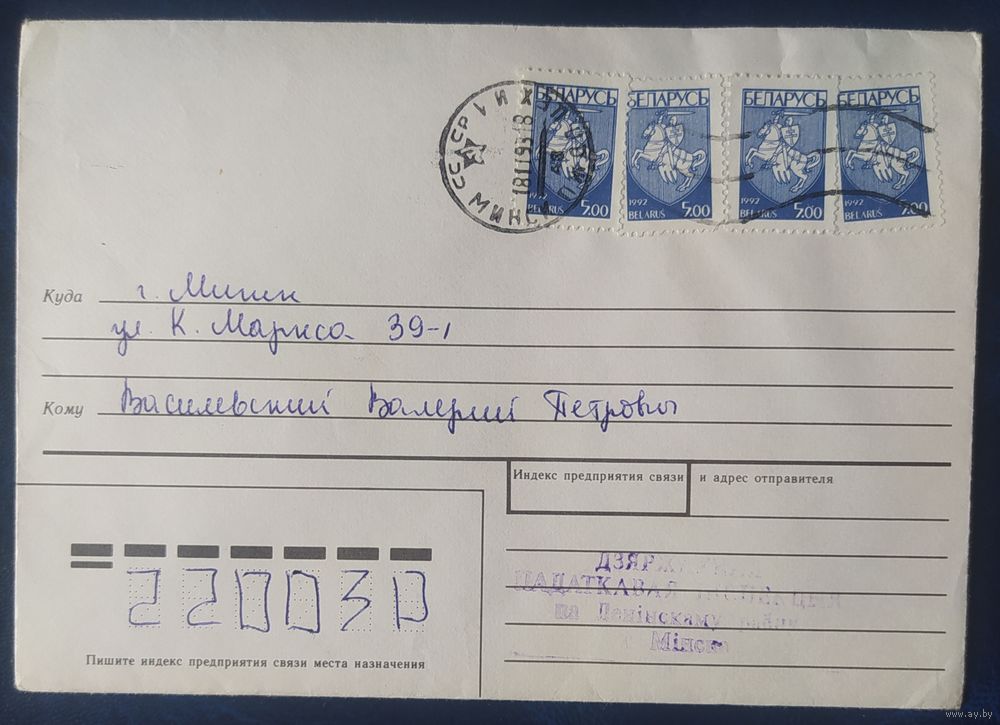 БЕЛАРУСЬ БЕЛАРУСЬ БЕЛАРУСЬ БЕЛАРУСЬ
1992 5.00 1992 5.00 1992 5.00 1992 5.00
BELARUS BELARUS BELARUS BELARUS
СССР
МИНСК
181193 18
Куда г. Минск
ул. К. Маркса 39-1
Кому Василевский Валерий Петрович
Индекс предприятия связи и адрес отправителя
ПАДАТКАВАЯ ІНСПЕКЦЫЯ
па Ленінскаму
г. Мінска
220030
Пишите индекс предприятия связи места назначения
www.ay.by